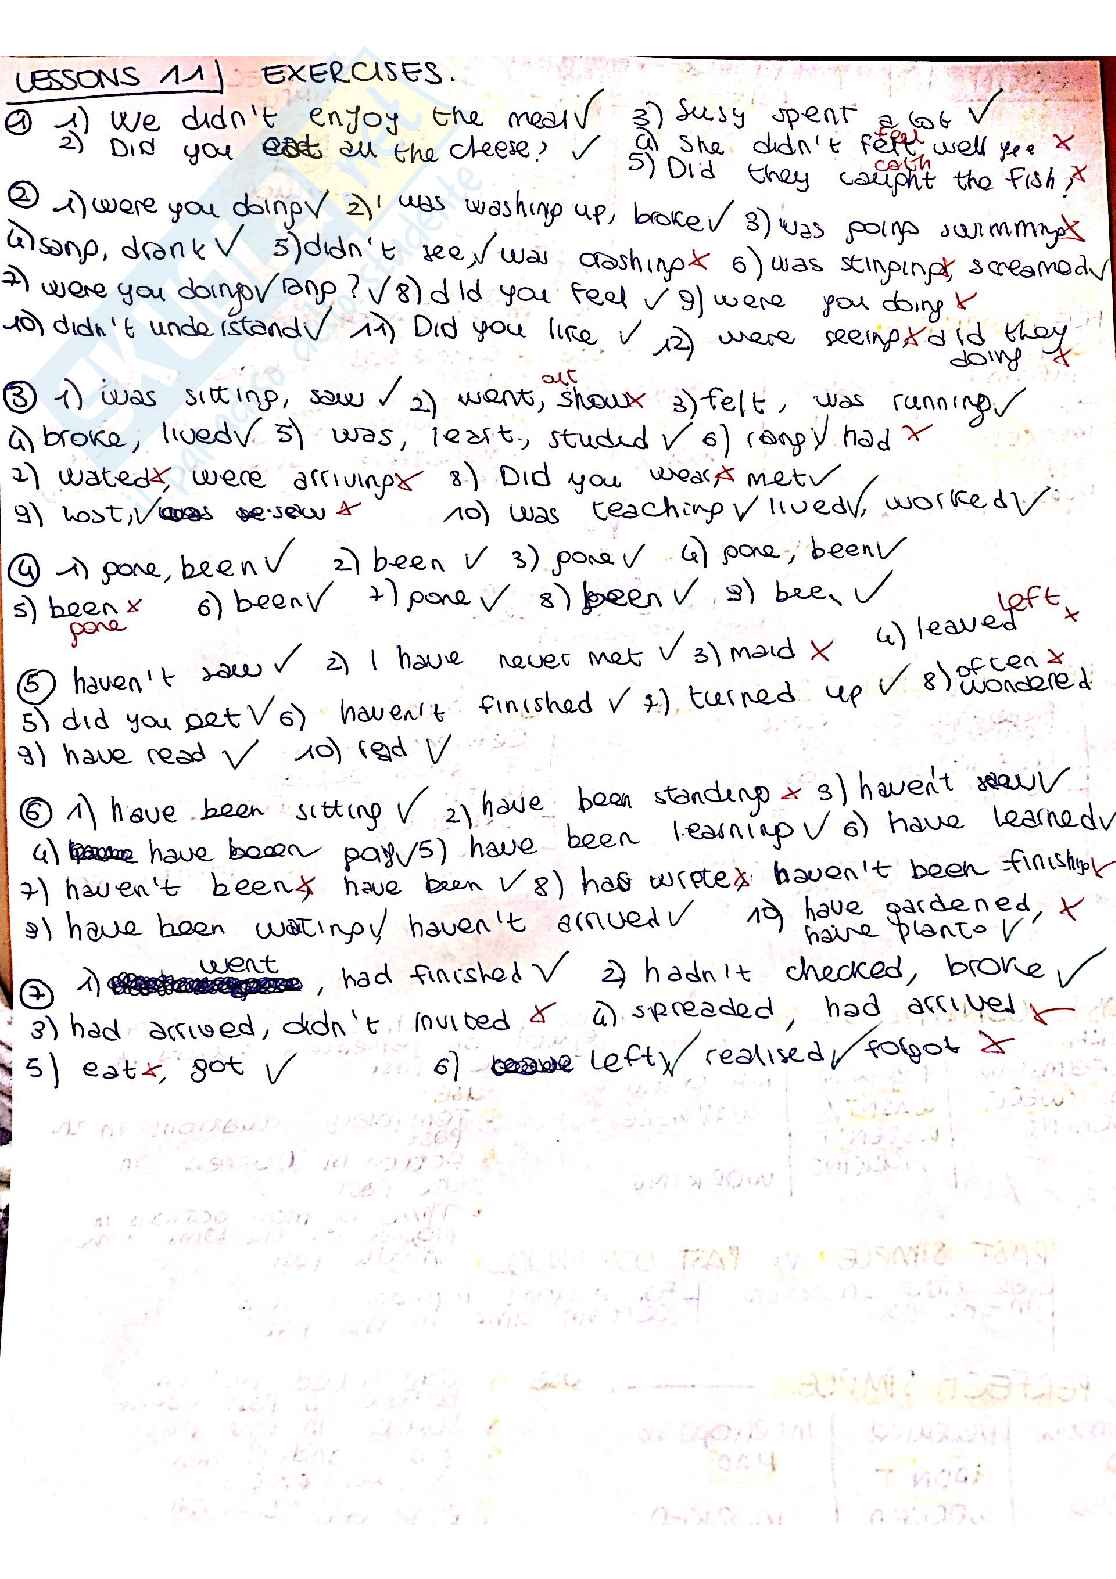 LESSONS 11 EXERCISES.
① 1) We didn't enjoy the meal ✓ 3) Susy spent a lot ✓
2) Did you eat all the cheese? ✓ 4) She didn't felt well yee ✗
feel
5) Did they caught the fish? ✗
catch
② 1) were you doing ✓ 2) I was washing up, broke ✓ 3) was going swimming ✗
4) sang, drank ✓ 5) didn't see, ✓ was crashing ✗ 6) was stinging ✗, screamed ✓
7) were you doing ✓ rang? ✓ 8) did you feel ✓ 9) were you doing ✗
10) didn't understand ✓ 11) Did you like ✓ 12) were seeing ✗ did they
doing ✗
③ 1) was sitting, saw ✓ 2) went, show ✗ 3) felt, was running ✓
4) broke, lived ✓ 5) was, leart, studied ✓ 6) rang ✓ had ✗
7) wated ✗, were arriving ✗ 8) Did you wear ✗ met ✓
9) lost, ✓ saw ✗ 10) was teaching ✓ lived ✓, worked ✓
④ 1) gone, been ✓ 2) been ✓ 3) gone ✓ 4) gone, been ✓
5) been ✗ 6) been ✓ 7) gone ✓ 8) been ✓ 9) been ✓
gone
left
⑤ haven't saw ✓ 2) I have never met ✓ 3) maid ✗ 4) leaved ✗
5) did you get ✓ 6) haven't finished ✓ 7) turned up ✓ 8) often ✗
wondered
9) have read ✓ 10) read ✓
⑥ 1) have been sitting ✓ 2) have been standing ✗ 3) haven't saw ✓
4) have been pay ✓ 5) have been learning ✓ 6) have learned ✓
7) haven't been ✗ have been ✓ 8) has wrote ✗ haven't been finishing ✓
9) have been wating ✓ haven't arrived ✓ 10) have gardened, ✗
have planto ✓
went
⑦ 1) , had finished ✓ 2) hadn't checked, broke ✓
3) had arrived, didn't invited ✗ 4) spreaded, had arrived ✗
5) eat ✗, got ✓ 6) left ✓ realised ✓ forgot ✗